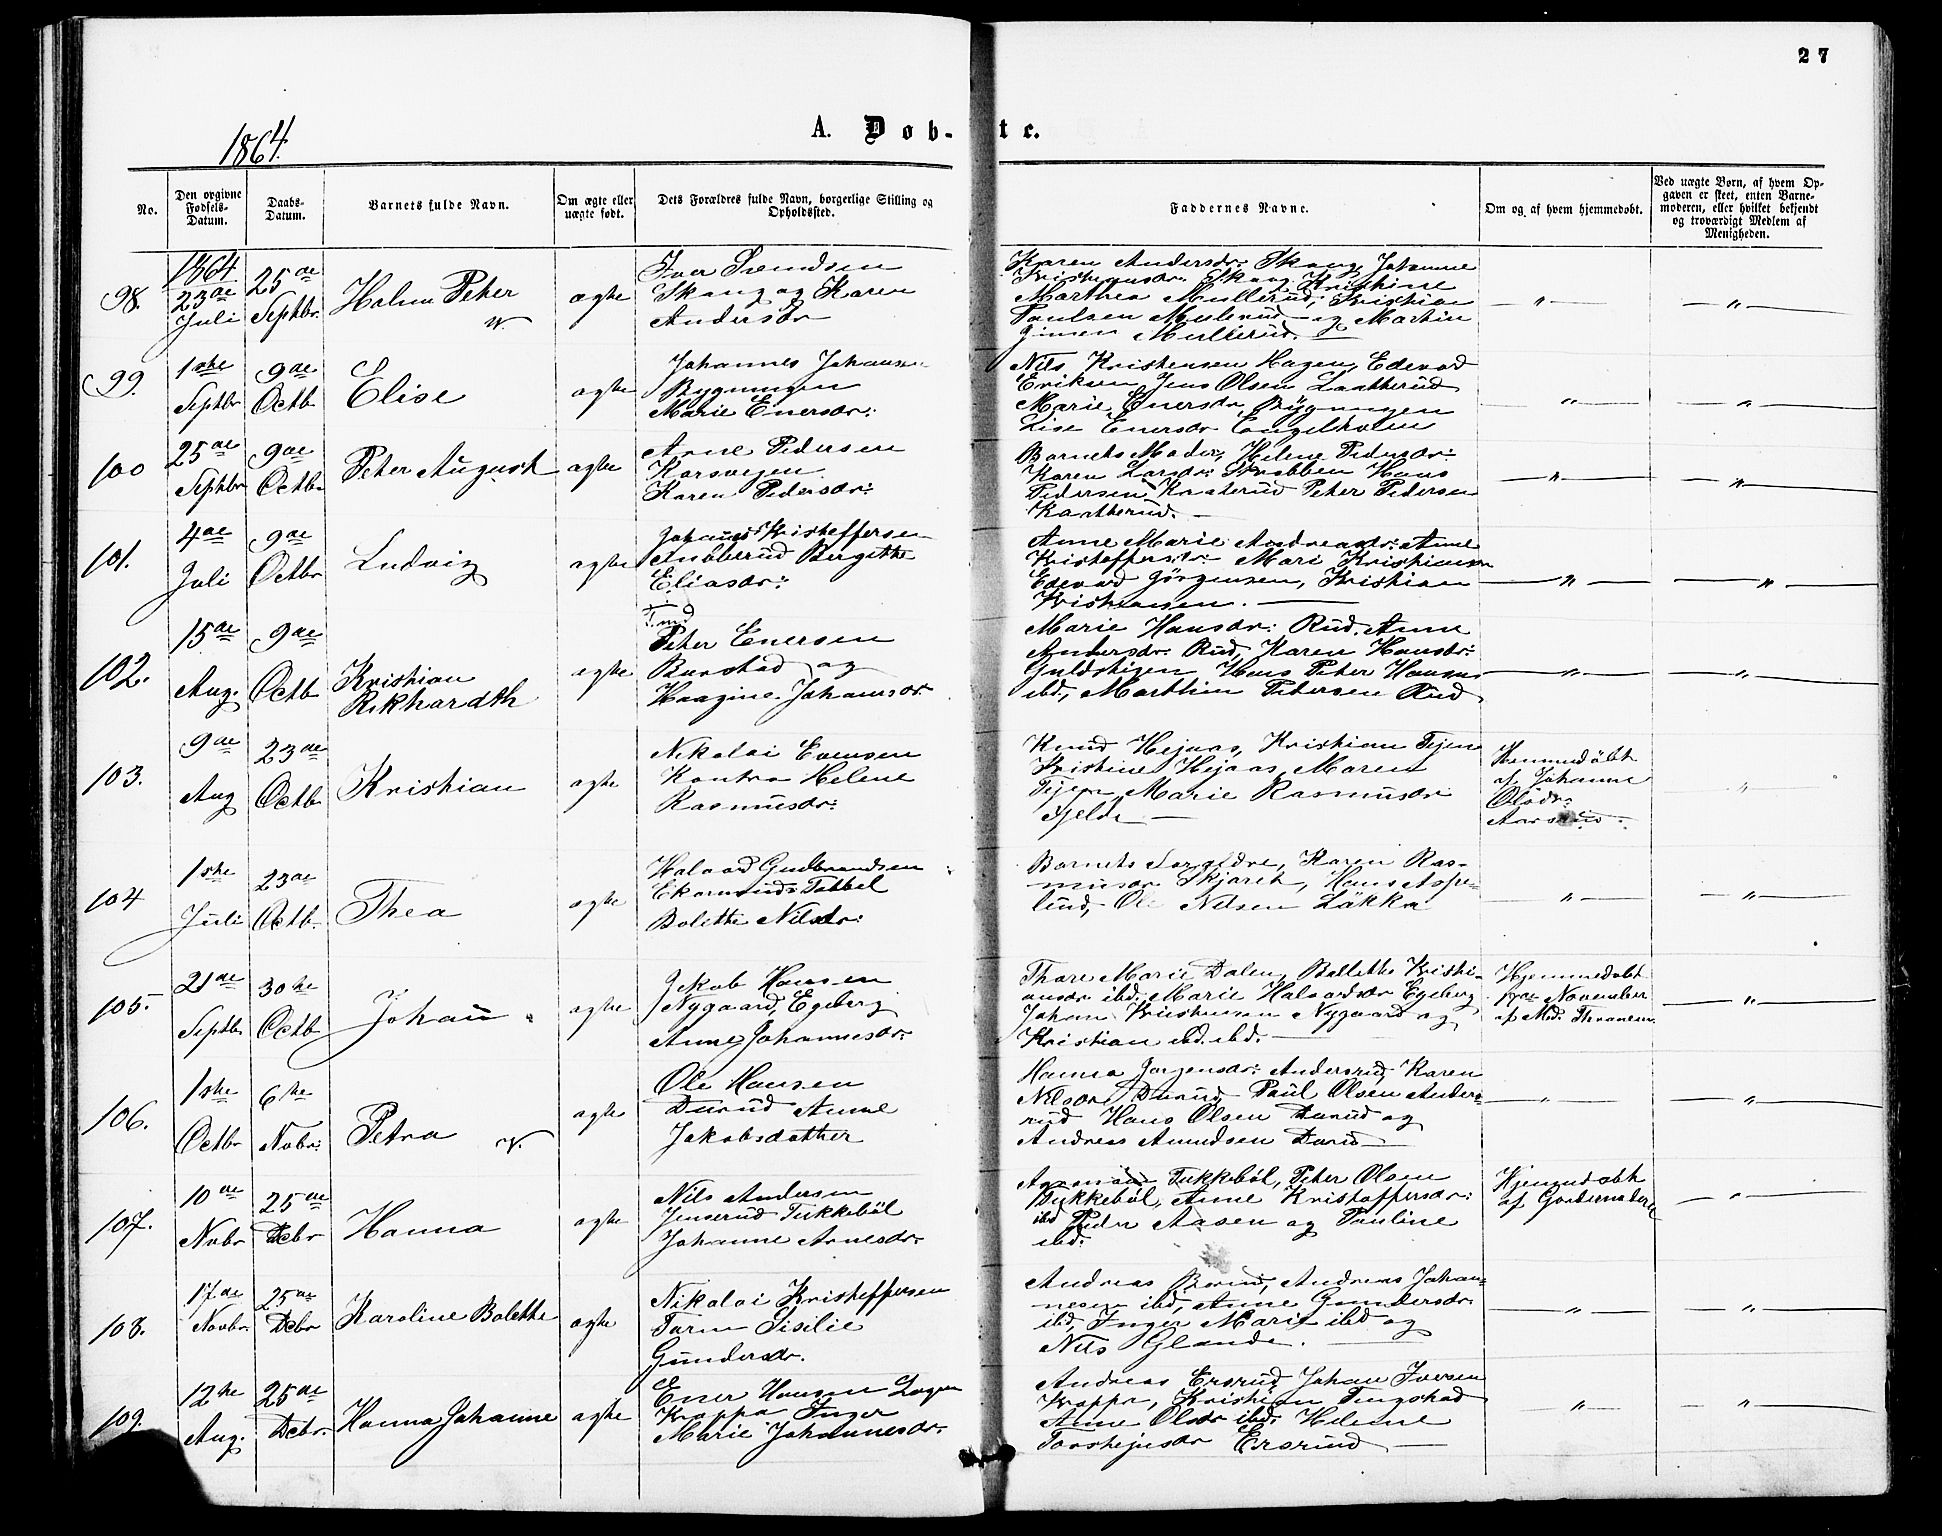 27
1864.
A. Døb-
te.
No.
Den opgivne Fødsels-Datum.
Daabs-Datum.
Barnets fulde Navn.
Om ægte eller uægte født.
Dets Forældres fulde Navn, borgerlige Stilling og Opholdsted.
Faddernes Navne.
Om og af hvem hjemmedøbt.
Ved uægte Børn, af hvem Op-
gaven er skeet, enten Barne-
moderen, eller hvilket bekjendt
og troværdigt Medlem af
Menigheden.
98.
1864
23de
Juli
25de
Septbr.
Halm Peter
ægte
Iver Svendsen
Skang og Karen
Andersdr
Karen Andersdr. Skang, Johanne
Skang, Kristine
Marthea Mullerud, Kristian
Paulsen Mulerud og Martin
Mullerud.
99.
1ste
Septbr
9de
Octb
Elise
ægte
Johannes Johansen
Bygningen
Marie Enersdr:
Nils Kristensen Hagen, Edevard
Eriksen, Jens Olsen Laatterud
Marie Enersdr, Bygningen
Lise Enersdr Engelholen
100
25de
Septbr
9de
Octb.
Peter August
ægte
Arne Pedersen
Korsvejen
Karen Pedersdr:
Barnets Moder, Helene Pedersdr:
Karen Larsdr: Hans
Pedersen Peter Pedersen
Kaatterud.
101.
4de
Juli
9de
Octbr
Ludvig
ægte
Johannes Kristoffersen
Aubberud Bergitthe
Eliasdr:
Anne Marie Andreasdr: Anne
Kristoffersdr: Mari Kristiansen
Edevard Jörgensen, Kristian
Kristiansen.
102.
15de
Aug.
9de
Octb
Kristian
Rikhardth
ægte
Peter Enersen
Bunstad og
Haagine Johansdr
Marie Hansdr: Rud, Anne
Andersdr. Rud, Karen Hansdr:
Guldstigen Hans Peter Hansen
ibd, Marthin Pedersen Rud
103.
9de
Aug
23de
Octb.
Kristian
ægte
Nikolai Evensen
Kontra Helene
Rasmusdr:
Knud Hejaas, Kristian Tejen
Kristine Hejaas, Maren
Tejen, Marie Rasmusdr
Fjelde
Hemmedöbt
af Johanne
Olsdr:
104
1ste
Juli
23de
Octb.
Thea
ægte
Halvard Gudbrandsen
Tabbel
Bolette Nilsdr:
Barnets Forældre, Karen Ras-
musdr. Skjæret, Hans Aspe-
lund, Ole Nilsen Läkka
105.
21de
Septb.
30te
Octb
Johan
ægte
Jakob Hansen
Nygaard, Egeberg
Anne Johannesdr.
Thore Marie Dalen, Bollette Kristi-
ansdr ibd, Marie Halvardsdr Egeberg
Johan Kristensen Nygaard og
Kristian ibd. ibd.
Hjemmedöbt
17de November
af Med.
106.
1ste
Octbr
6te
Nvbr:
Petra
ægte
Ole Hansen
Durud Anne
Jakobsdatter
Hanna Jorgensdr: Andersrud, Karen
Nilsdr Durud, Paul Olsen Anders-
rud Hans Olsen Durud og
Andreas Amundsen Durud
107.
10de
Nvbr
25de
Dcbr
Hanna
ægte
Nils Andersen
Jenserud Tukkeböl
Johanne Arnesdr.
Tukkeböl, Peter Olsen
Tukkeböl, Anne Kristoffersdr:
ibd Peder Aasen og Pauline
ibd.
Hjemmedöbt
af Gordemoderen
108.
17de
Novbr.
25de
Dcbr
Karoline Bolette
ægte
Nikolai Kristoffersen
Sisilie
Gundersdr.
Andreas Andreas Johan-
nesen ibd, Anne Gundersdr
ibd, Inger Marie ibd og
Nils Glande.
109.
12te
Aug.
25de
Dcbr.
Hanna Johanne
ægte
Ener Hansen
Kroppa Inger
Marie Johannesdr.
Andreas Ersrud, Johan Iversen
Kroppa, Kristian Tingstad
Anne Olsdr ibd, Helene
Torstejnsdr Ersrud